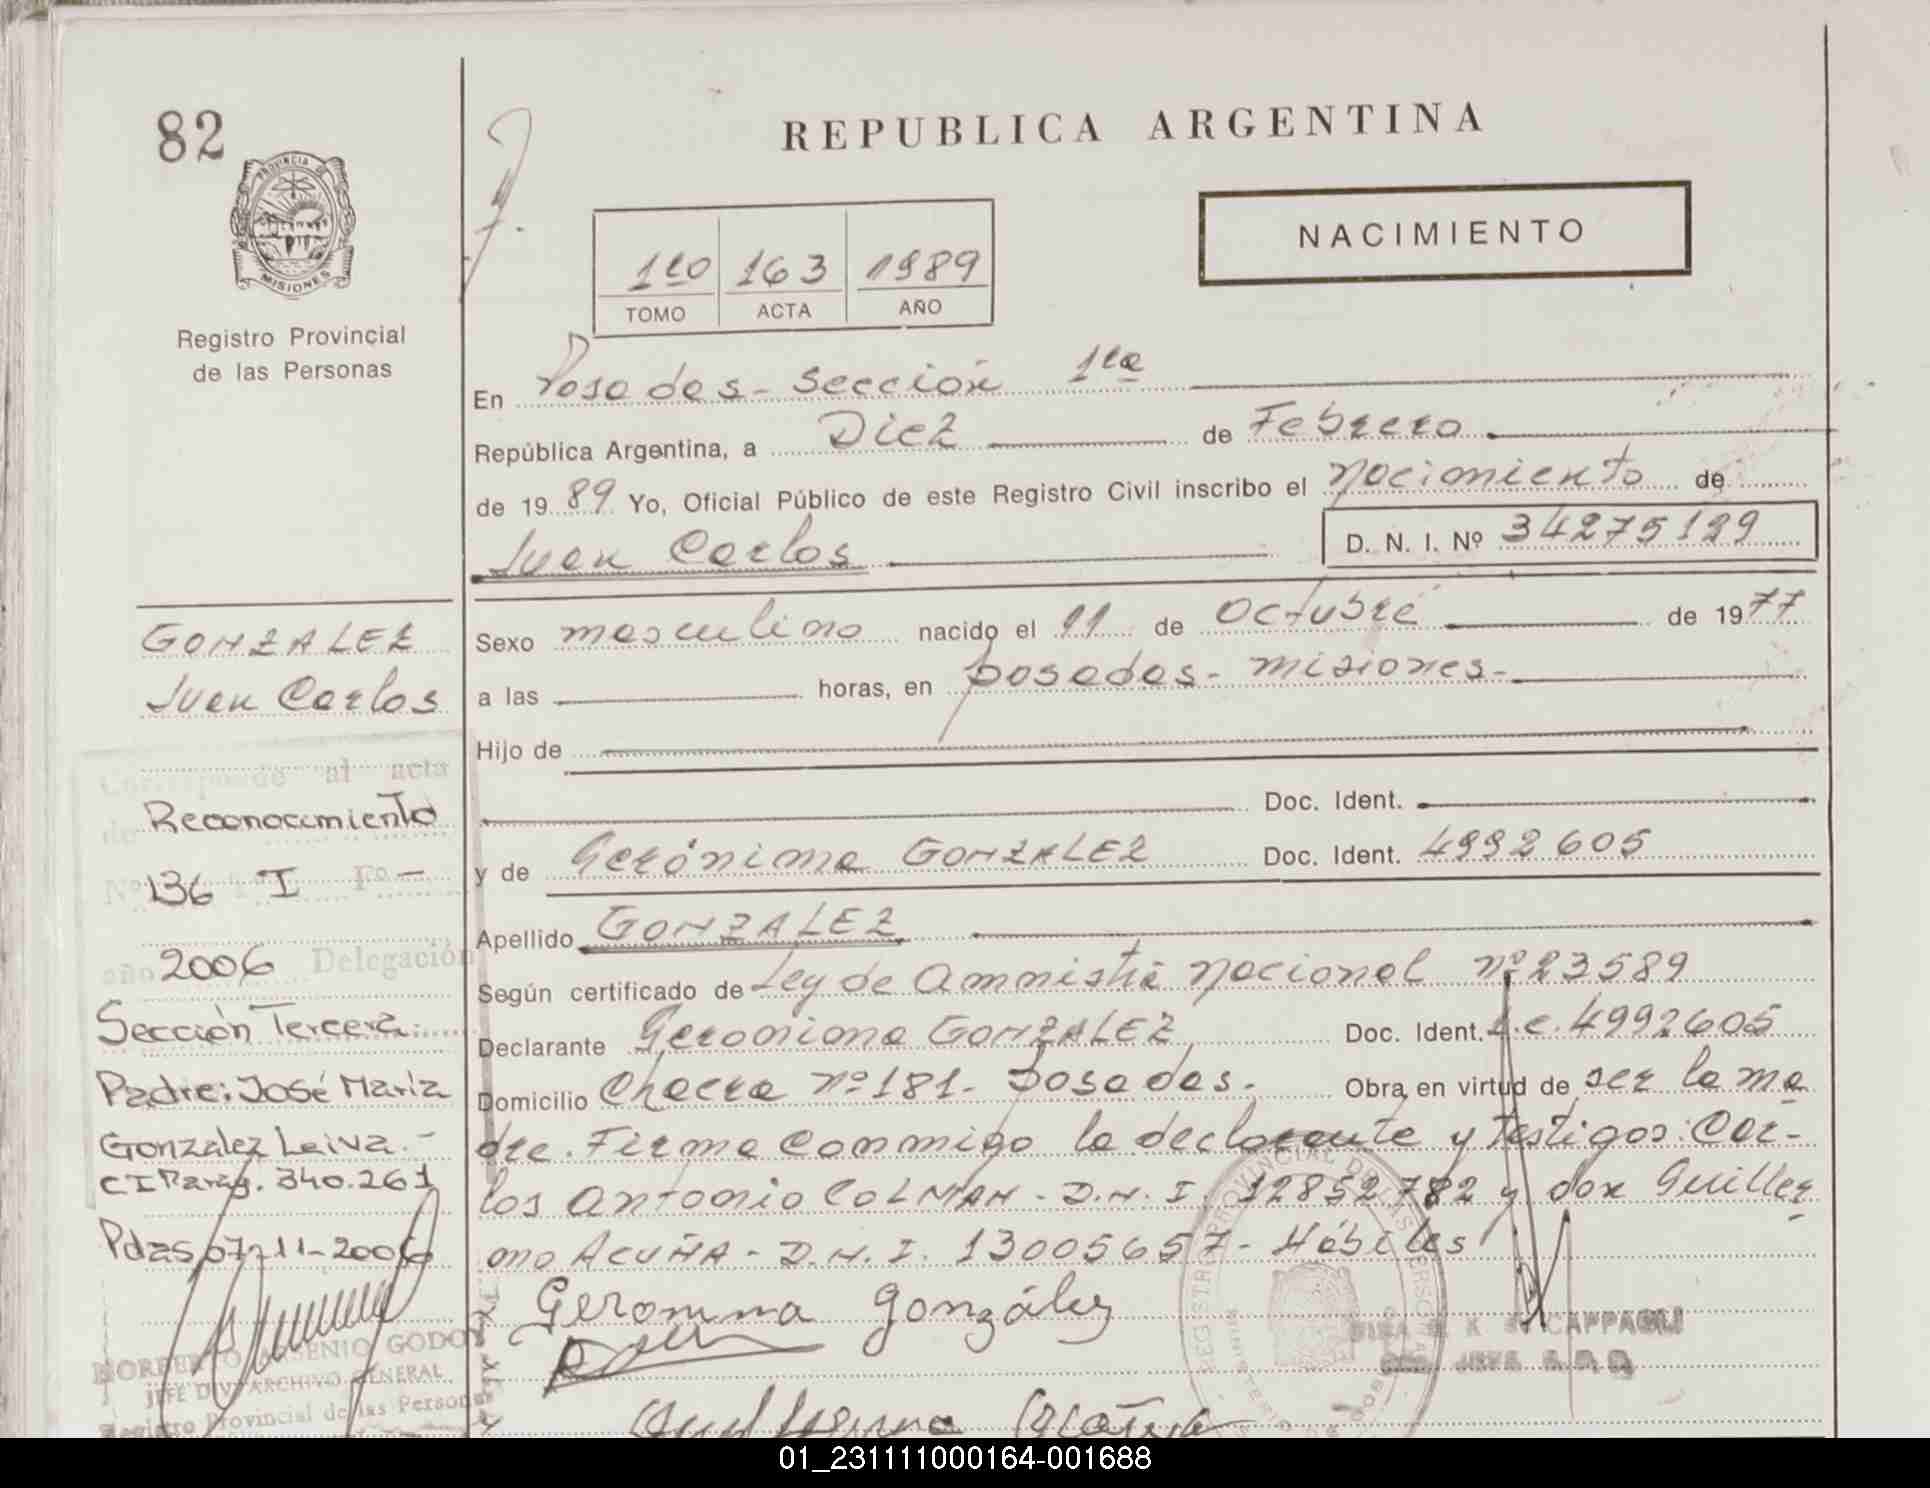 82
PROVINCIA
MISIONES
Registro Provincial
de las Personas
REPUBLICA ARGENTINA
NACIMIENTO
1ro 163 1989
TOMO ACTA AÑO
En Posadas - Sección 1ra
República Argentina, a Diez de Febrero
de 19 89 Yo, Oficial Público de este Registro Civil inscribo el nacimiento de
Juan Carlos D. N. I. Nº 34275129
Sexo masculino nacido el 11 de Octubre de 19 77
a las horas, en posadas - misiones -
Hijo de
Doc. Ident.
y de Gerónima GONZALEZ Doc. Ident. 4992605
Apellido GONZALEZ
Según certificado de Ley de Amnistia nacional nº 23589
Declarante Geronima GONZALEZ Doc. Ident. L.C. 4992605
Domicilio Chacra nº 181 - posadas - Obra en virtud de ser la ma
dre. Firma conmigo la declarante y testigos: Car-
los Antonio COLMAN - D.N.I. 12852782 y don Guiller
mo ACUÑA - D.N.I. 13005657 - Hábiles
Geronima González
GONZALEZ
Juan Carlos
Corresponde al acta
de Reconocimiento
Nº 136 Tº I Fº -
año 2006 Delegación
Sección Tercera.
Padre: José María
Gonzalez Leiva. -
CI Parag. 340.261
Pdas 07-11-2006
NORBERTO ARSENIO GODOY
JEFE DIV. ARCHIVO GENERAL
Registro Provincial de las Personas
REGISTRO PROVINCIAL DE LAS PERSONAS
CAPPAGLI
01_231111000164-001688